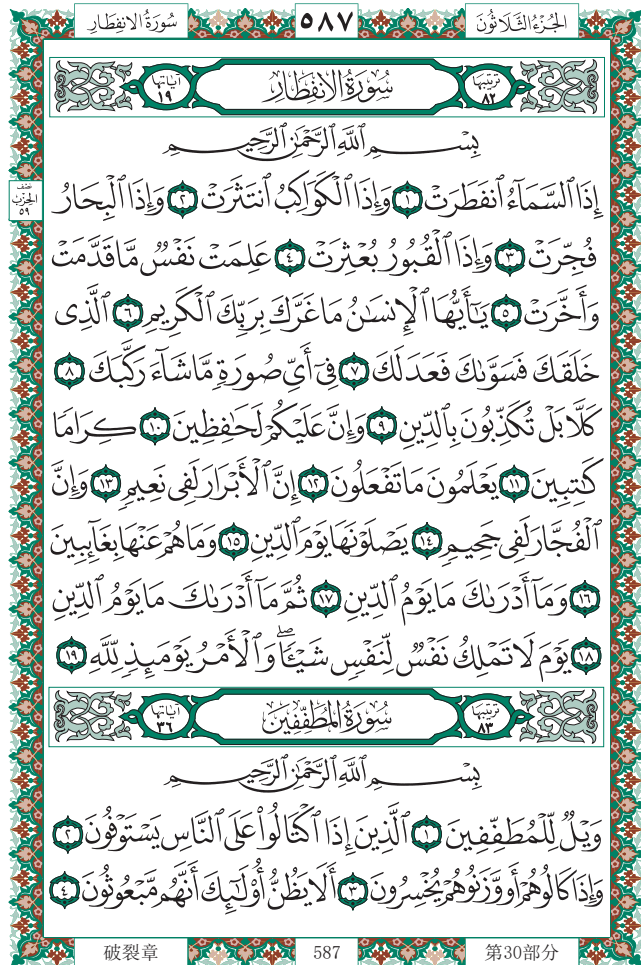 سُورَةُ الانفِطَار ٥٨٧ الجُزْءُ الثَّلَاثُون
ترتيبها ٨٢ سُورَةُ الانفِطَارِ آياتها ١٩
بِسْمِ ٱللَّهِ ٱلرَّحْمَٰنِ ٱلرَّحِيمِ
إِذَا ٱلسَّمَآءُ ٱنفَطَرَتْ ١ وَإِذَا ٱلْكَوَاكِبُ ٱنتَثَرَتْ ٢ وَإِذَا ٱلْبِحَارُ
نصف الحِزْب ٥٩
فُجِّرَتْ ٣ وَإِذَا ٱلْقُبُورُ بُعْثِرَتْ ٤ عَلِمَتْ نَفْسٌ مَّا قَدَّمَتْ
وَأَخَّرَتْ ٥ يَٰٓأَيُّهَا ٱلْإِنسَٰنُ مَا غَرَّكَ بِرَبِّكَ ٱلْكَرِيمِ ٦ ٱلَّذِى
خَلَقَكَ فَسَوَّىٰكَ فَعَدَلَكَ ٧ فِىٓ أَىِّ صُورَةٍ مَّا شَآءَ رَكَّبَكَ ٨
كَلَّا بَلْ تُكَذِّبُونَ بِٱلدِّينِ ٩ وَإِنَّ عَلَيْكُمْ لَحَٰفِظِينَ ١٠ كِرَامًا
كَٰتِبِينَ ١١ يَعْلَمُونَ مَا تَفْعَلُونَ ١٢ إِنَّ ٱلْأَبْرَارَ لَفِى نَعِيمٍ ١٣ وَإِنَّ
ٱلْفُجَّارَ لَفِى جَحِيمٍ ١٤ يَصْلَوْنَهَا يَوْمَ ٱلدِّينِ ١٥ وَمَا هُمْ عَنْهَا بِغَآئِبِينَ
١٦ وَمَآ أَدْرَىٰكَ مَا يَوْمُ ٱلدِّينِ ١٧ ثُمَّ مَآ أَدْرَىٰكَ مَا يَوْمُ ٱلدِّينِ
١٨ يَوْمَ لَا تَمْلِكُ نَفْسٌ لِّنَفْسٍ شَيْـًٔا ۖ وَٱلْأَمْرُ يَوْمَئِذٍ لِّلَّهِ ١٩
ترتيبها ٨٣ سُورَةُ المُطَفِّفِينَ آياتها ٣٦
بِسْمِ ٱللَّهِ ٱلرَّحْمَٰنِ ٱلرَّحِيمِ
وَيْلٌ لِّلْمُطَفِّفِينَ ١ ٱلَّذِينَ إِذَا ٱكْتَالُوا۟ عَلَى ٱلنَّاسِ يَسْتَوْفُونَ ٢
وَإِذَا كَالُوهُمْ أَو وَّزَنُوهُمْ يُخْسِرُونَ ٣ أَلَا يَظُنُّ أُو۟لَٰٓئِكَ أَنَّهُم مَّبْعُوثُونَ ٤
破裂章 587 第30部分